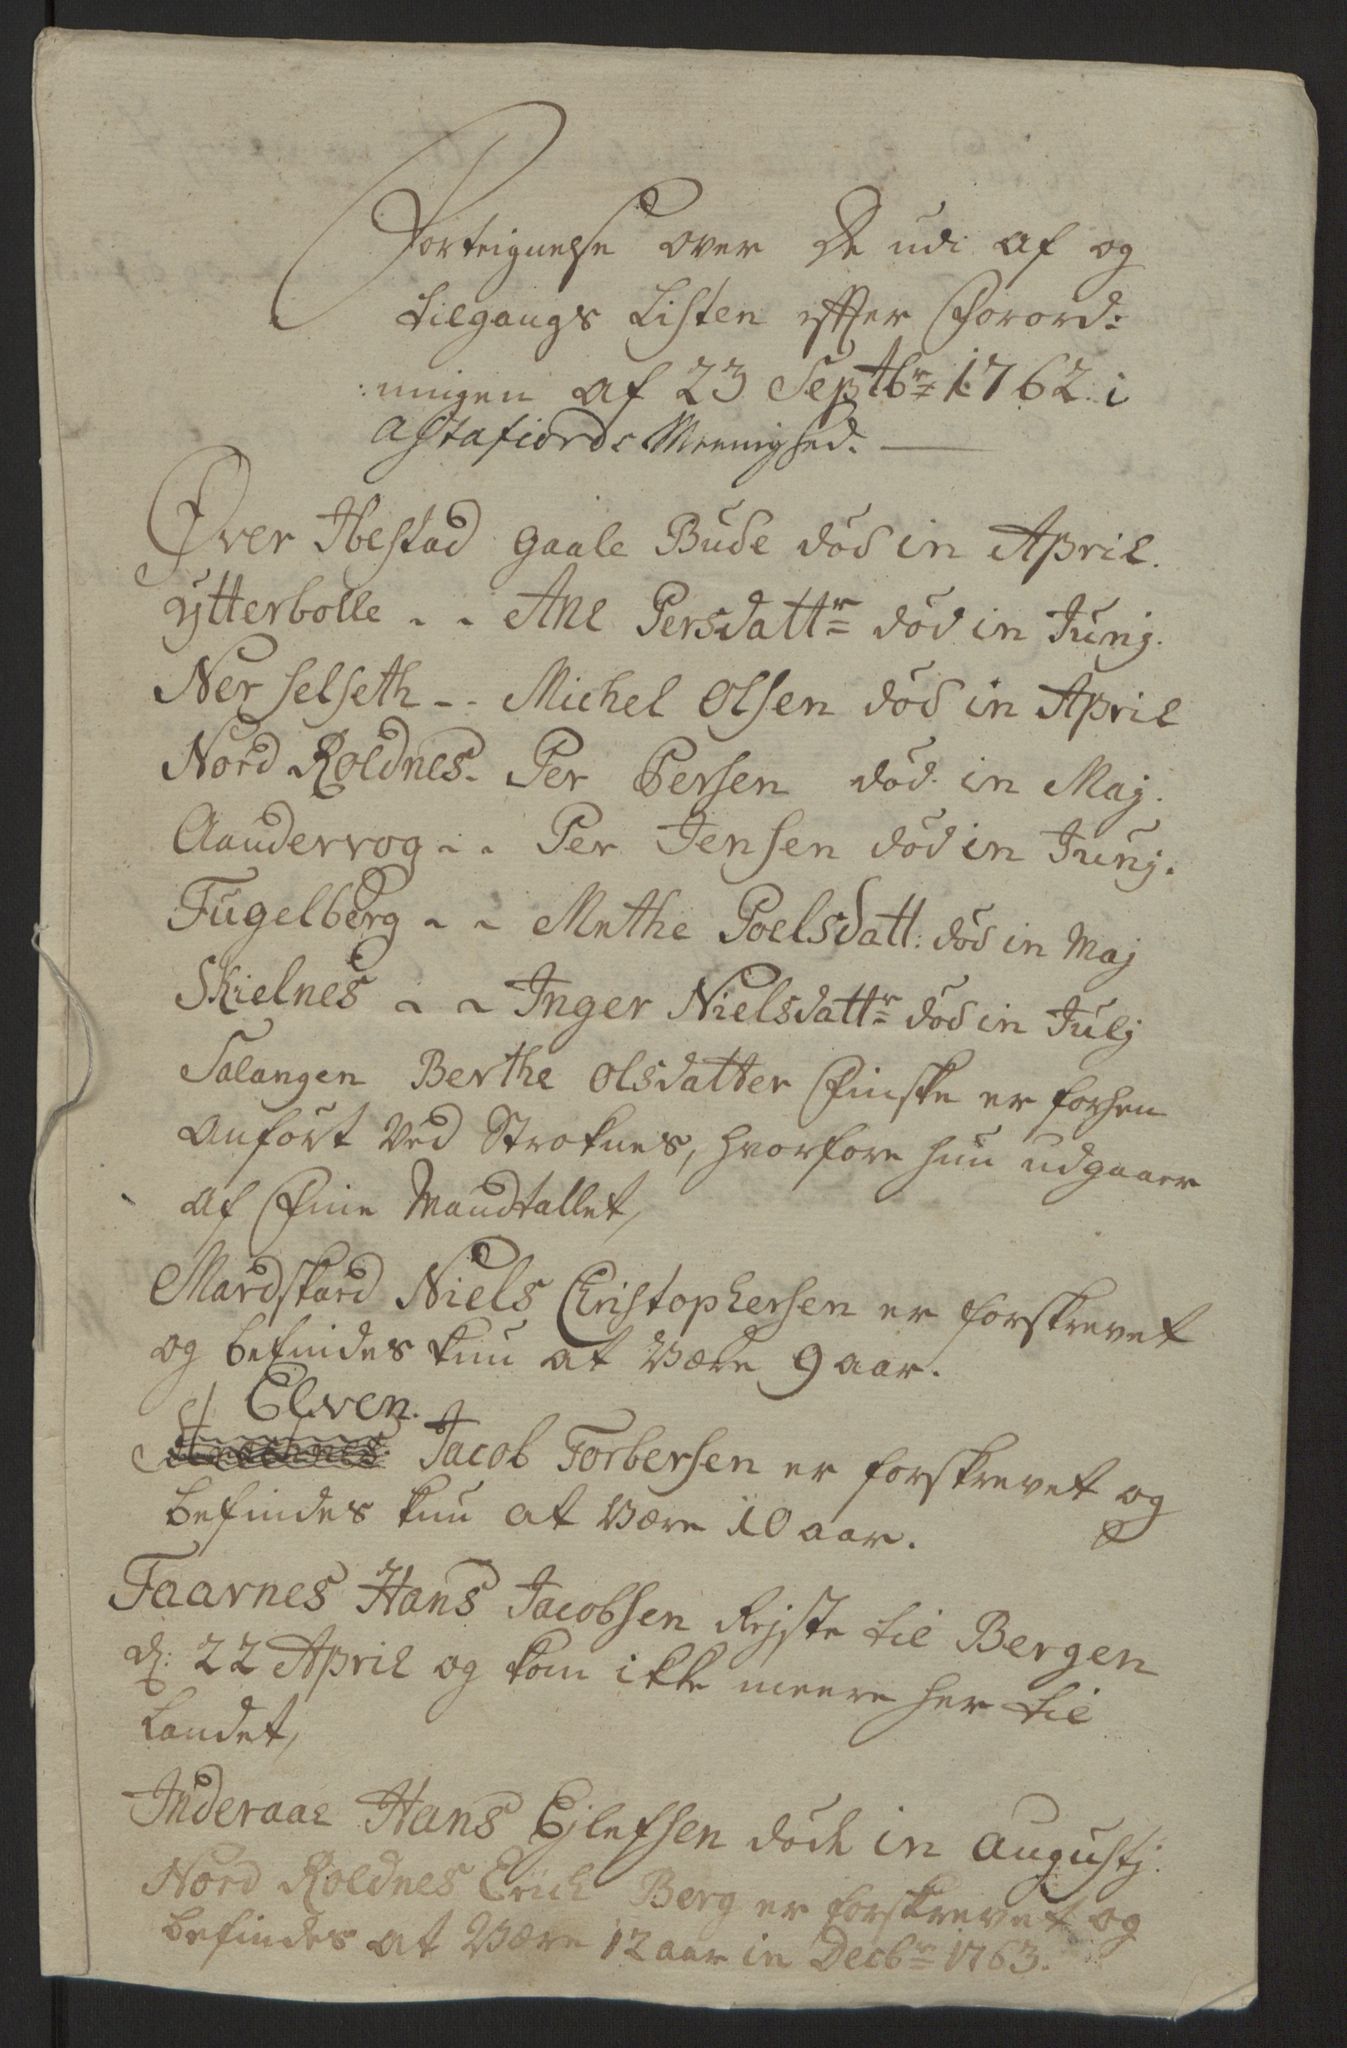 Forteignelse over De udi af og
tilgangs Listen efter Forord:
:ningen af 23 Septbr: 1762 i
Astafiords Meenighed.
Över Ibestad Gaale Bude död in April.
Ytterbolle - - Ane Persdattr död in Junj.
Ner Selseth - - Michel Olsen död in April
Nord Roldnes. Per Persen död in Maj.
Aandervog - - Per Jensen död in Junj.
Fugelberg - - Methe Poelsdatt: död in Maj
Skielnes - - Inger Nielsdattr död in Julj
Salangen Berthe Olsdatter Finske er forhen
anfört ved Stroknes, hvorfore hun udgaaer
af Fine Mandtallet,
Mardskard Niels Christophersen er forskrevet
og befindes kun at være 9 aar.
Elven.
Jacob Torbersen er forskrevet og
befindes kun at være 10 aar.
Faarnes Hans Jacobsen Rejste til Bergen
d: 22 April og kom ikke meere her til
Landet,
Inderaae Hans Ejlefsen döde in Augustj.
Nord Roldnes Erich Berg er forskrevet og
befindes at være 12 aar in Decbr 1763.